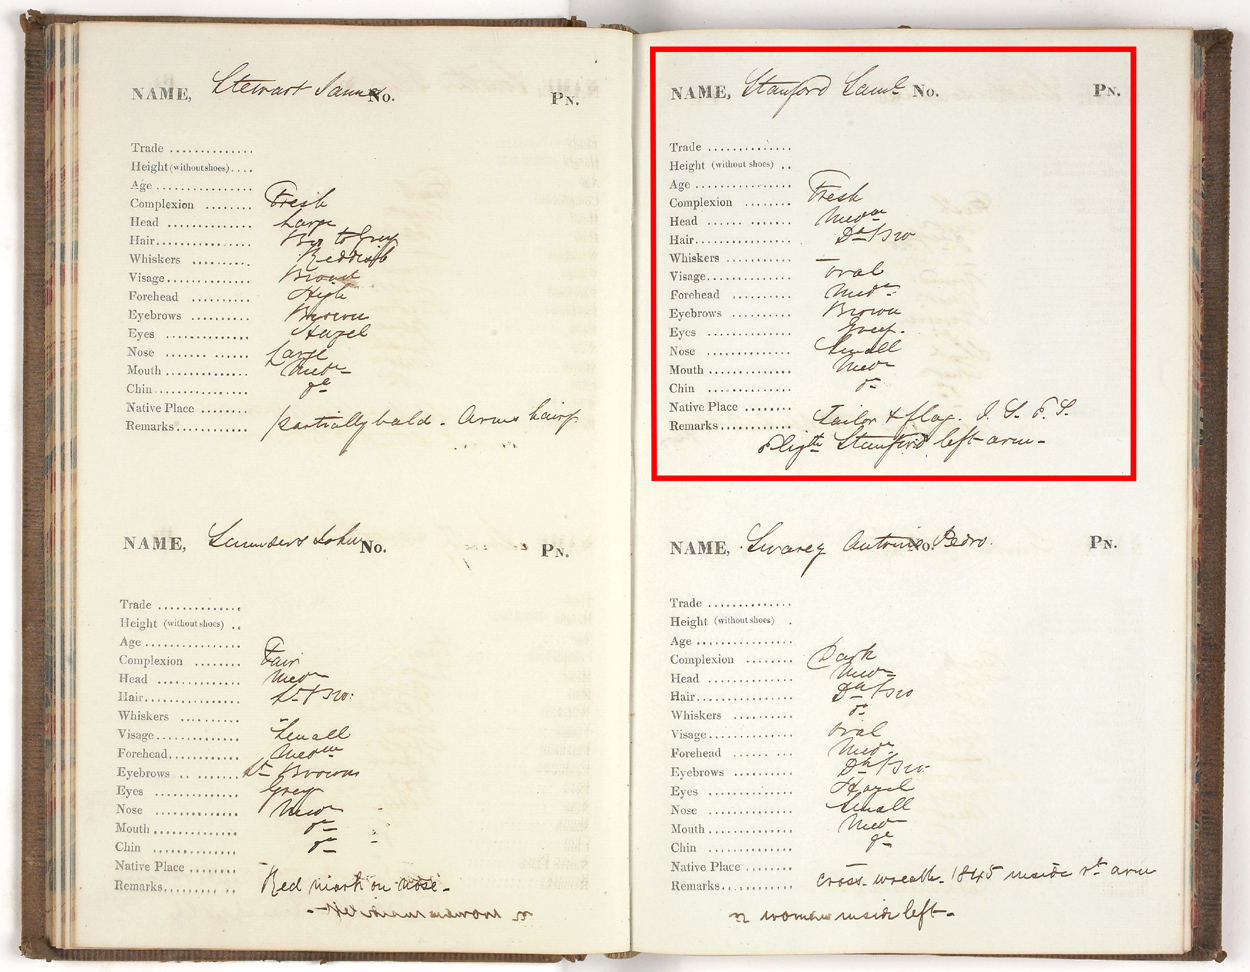 NAME, Stewart James No. PN.
Trade ..............
Height (without shoes) ....
Age ................
Complexion ........ Fresh
Head ............... Large
Hair ................ Bro to Grey
Whiskers .......... Reddish
Visage .............. Broad
Forehead .......... High
Eyebrows .......... Brown
Eyes ................ Hazel
Nose ................ Large
Mouth .............. Medm
Chin ................ do
Native Place .......
Remarks ............ partially bald. Arms hairy
NAME, Saunders John No. PN.
Trade ..............
Height (without shoes) ..
Age ................
Complexion ........ Fair
Head ............... Medm
Hair ................ Lt Bro.
Whiskers ..........
Visage .............. Small
Forehead .......... Medm
Eyebrows .......... Lt Brown
Eyes ................ Grey
Nose ................ Medm
Mouth .............. do
Chin ................ do
Native Place .......
Remarks ............ Red mark on nose.
NAME, Stanford Saml No. PN.
Trade ..............
Height (without shoes) ..
Age ................
Complexion ........ Fresh
Head ............... Medm
Hair ................ Dk Bro
Whiskers .......... –
Visage .............. oval
Forehead .......... Medm
Eyebrows .......... Brown
Eyes ................ Grey.
Nose ................ Small
Mouth .............. Medm
Chin ................ do
Native Place .......
Remarks ............ Sailor & flag. S. S.
Stanford left arm.
NAME, Swarey Antonio No. Pedro. PN.
Trade ..............
Height (without shoes) .
Age ................
Complexion ........ Dark
Head ............... Medm
Hair ................ Dk Bro
Whiskers .......... do
Visage .............. oval
Forehead .......... Medm
Eyebrows .......... Dk Bro.
Eyes ................ Hazel
Nose ................ Small
Mouth .............. Medm
Chin ................ do
Native Place .......
Remarks ............ cross. wreath. 1845 inside rt arm
n woman inside left.